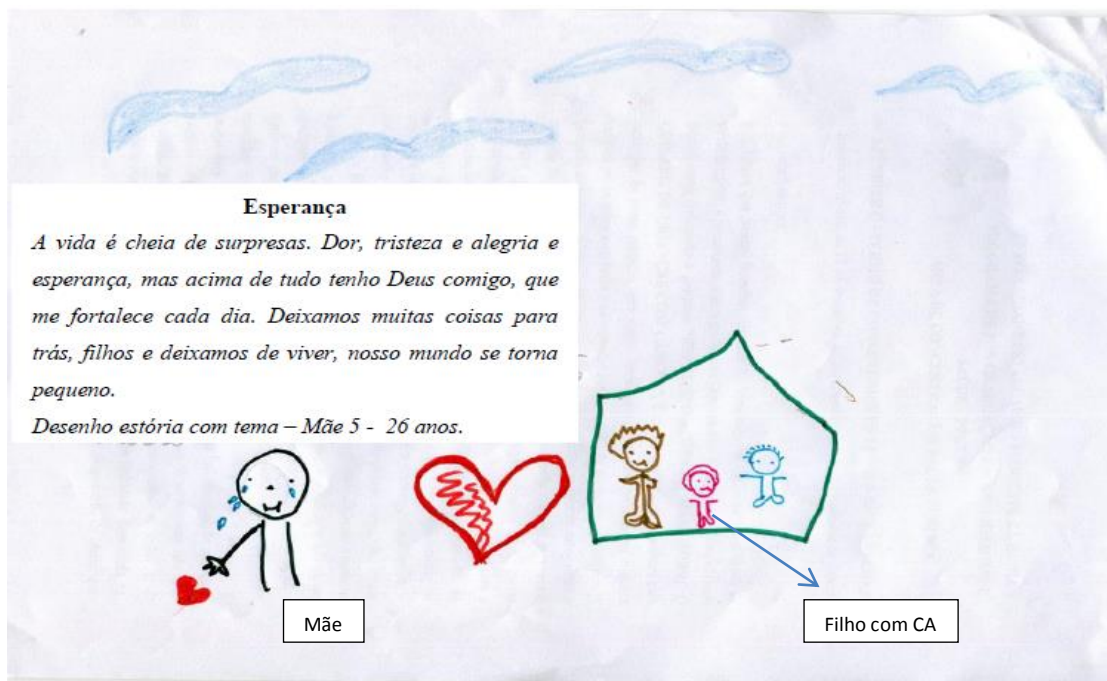 Esperança
A vida é cheia de surpresas. Dor, tristeza e alegria e
esperança, mas acima de tudo tenho Deus comigo, que
me fortalece cada dia. Deixamos muitas coisas para
trás, filhos e deixamos de viver, nosso mundo se torna
pequeno.
Desenho estória com tema – Mãe 5 - 26 anos.
Mãe
Filho com CA